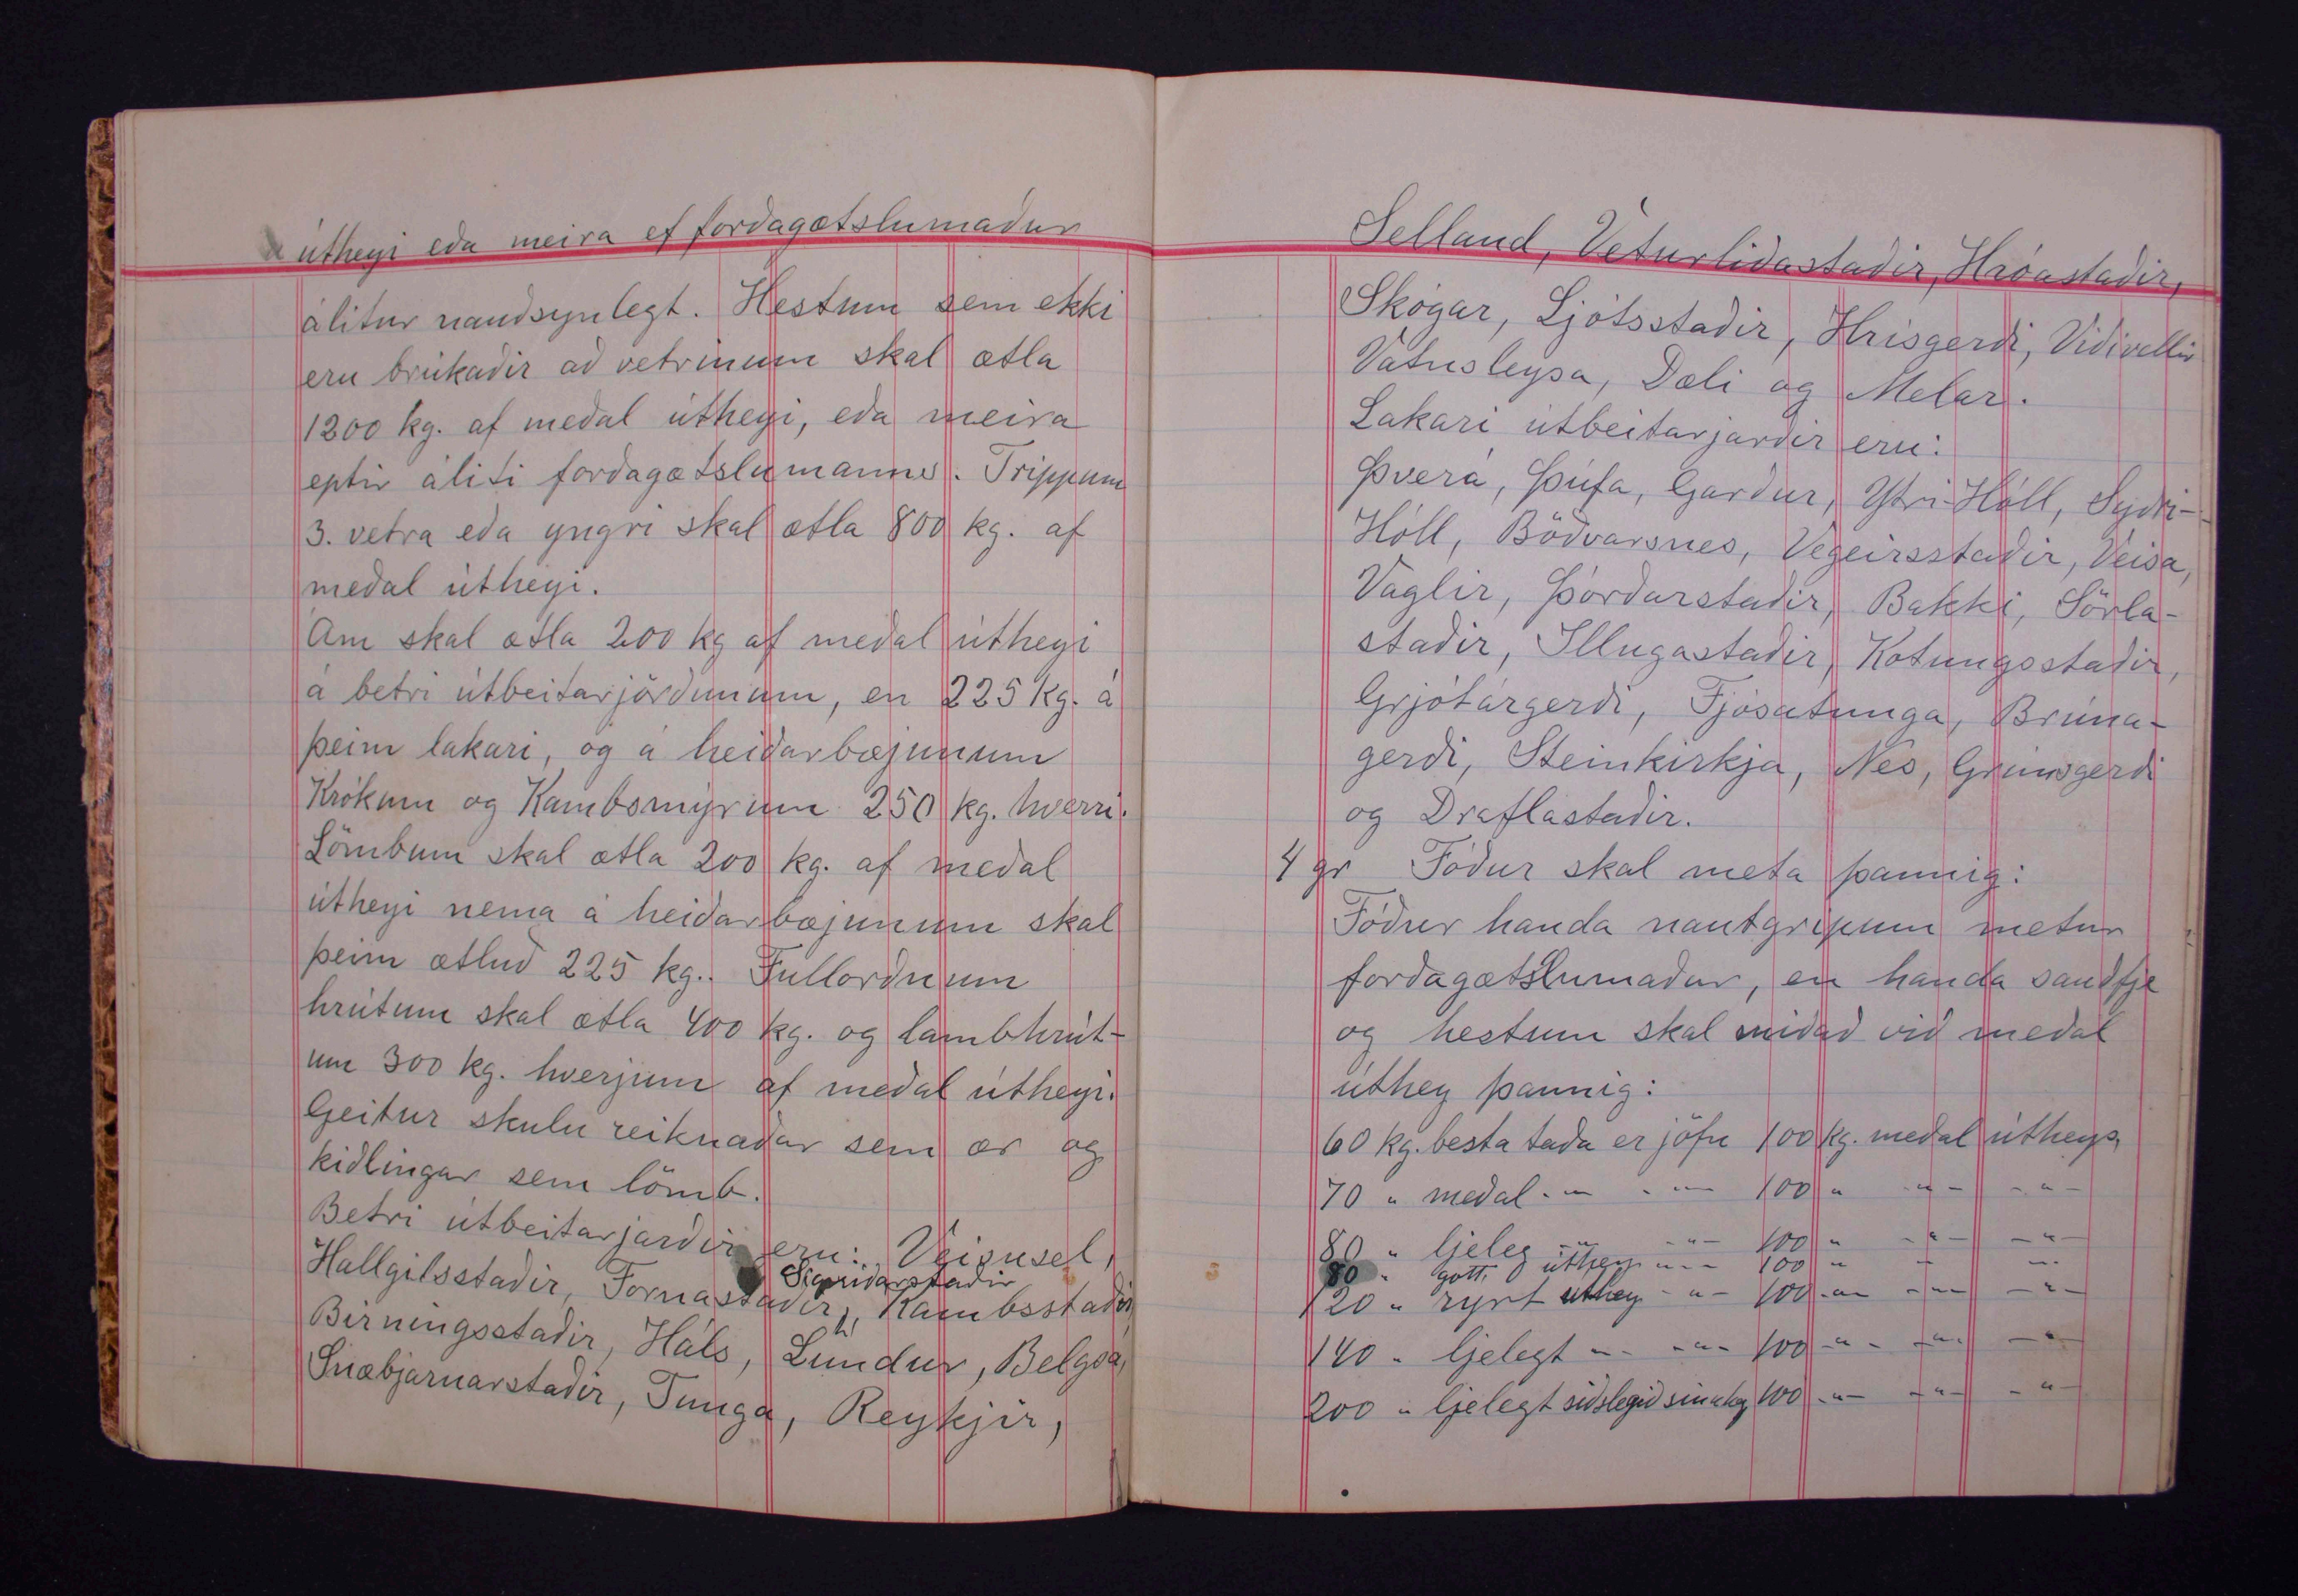 útheyi eða meira ef forðagætslumaður
álitur nauðsynlegt. Hestum sem ekki
eru brúkaðir að vetrinum skal ætla
1200 kg. af meðal útheyi, eða meira
eptir áliti forðagætslumanns. Trippum
3. vetra eða yngri skal ætla 800 kg. af
meðal útheyi.
Ám skal ætla 200 kg af meðal útheyi
á betri útbeitarjörðunum, en 225 kg. á
þeim lakari, og á heiðarbæjunum
Krókum og Kambsmýrum 250 kg. hverri.
Lömbum skal ætla 200 kg. af meðal
útheyi nema á heiðarbæjunum skal
þeim ætluð 225 kg.. Fullorðnum
hrútum skal ætla 400 kg. og lambhrút-
um 300 kg. hverjum af meðal útheyi.
Geitur skulu reiknaðar sem ær og
kiðlingar sem lömb.
Betri útbeitarjarðir eru: Veisusel,
Hallgilsstaðir, Fornastaðir, Sigríðarstaðir Kambsstaðir
Birningsstaðir, Háls, Lundur, Belgsá,
Snæbjarnarstaðir, Tunga, Reykjir,
Selland, Veturliðastaðir, Hróastaðir,
Skógar, Ljótsstaðir, Hrísgerði, Viðivellir
Vatnsleysa, Dæli og Melar.
Lakari útbeitarjarðir eru:
Þverá, Þúfa, Garður, Ytri-Hóll, Syðri-
Hóll, Böðvarsnes, Vegeirsstaðir, Veisa,
Vaglir, Þórðarstaðir, Bakki, Sörla-
staðir, Illugastaðir, Kotungsstaðir,
Grjótárgerði, Fjósatunga, Brúna-
gerði, Steinkirkja, Nes, Grímsgerði
og Draflastaðir.
4 gr Fóður skal meta þannig:
Fóður handa nautgripum metur
forðagætslumaður, en handa sauðfje
og hestum skal miðað við meðal
úthey þannig:
60 kg. besta taða er jöfn 100 kg. meðal útheys
70 " meðal -"- -"- 100 " -"- -"-
80 " ljeleg -"- -"- 100 " -"- -"-
80 " gott úthey -"- 100 " -"- -"-
120 " rýrt úthey -"- 100 -"- -"- -"-
140 " ljelegt -"- -"- 100 -"- -"- -"-
200 " ljelegt síðslegið sinuhey 100 -"- -"- -"-